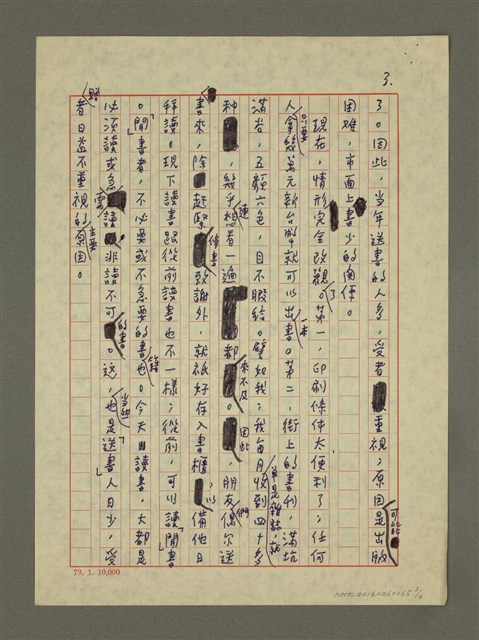 3.
了。因此，當年送書的人多，受者重視；原因可能是出版
困难，市面上書少的關係。
現在，情形完全改觀了。第一，印刷條件太便利了；任何
人只要拿幾萬元新台幣就可以出一本書。第二，街上的書刊，滿坑
滿谷，五顏六色，目不暇給。譬如我：我每月單是雜誌，就收到四十多
種，幾乎連想看一遍都來不及。因此，朋友們偶尔送
書來，除趕緊致謝外，就祇好存入書櫃，以備他日
拜讀。現下讀書跟從前讀書也不一樣；從前，可以讀「閒書」
。「閒」書者，不必要或不急要的書籍也。今天讀書，大都是
必須讀或急需讀非讀不可的書。這，當然也是「送書」人日少，受
者日益不重視的主要原因。
79. 1. 10,000
NMTL20160260065 3/6